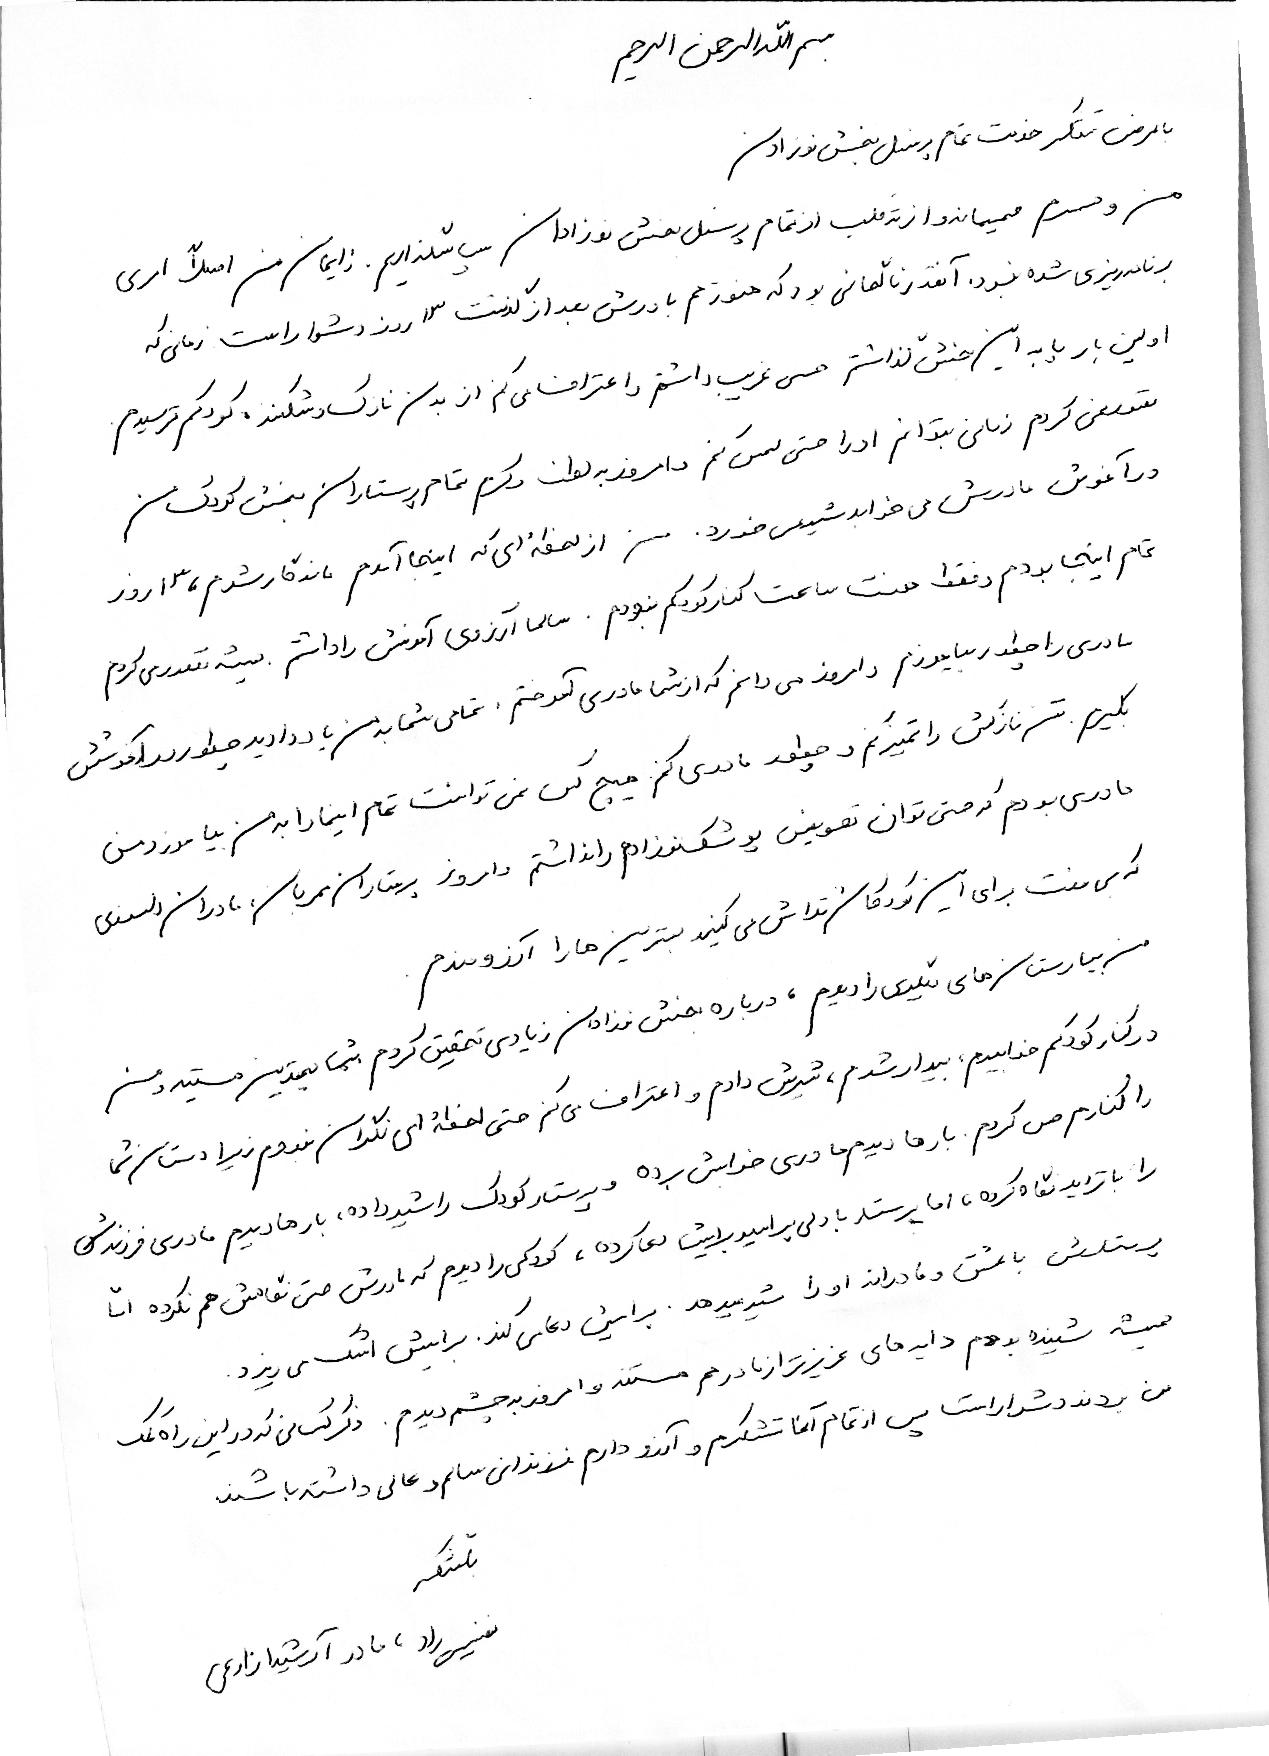 بسم الله الرحمن الرحیم
با عرض تشکر خدمت تمام پرسنل بخش نوزادان
من و همسرم صمیمانه و از ته قلب از تمام پرسنل بخش نوزادان سپاسگذاریم. زایمان من اصلاً امری
برنامه‌ریزی شده نبود. آنقدر ناگهانی بود که هنوز هم باورش بعد از گذشت ۱۳ روز دشوار است زمانی که
اولین بار پا به این بخش گذاشتم حس غریبی داشتم و اعتراف می‌کنم از بدن نازک و شکننده کودکم ترسیدم.
تصور نمی‌کردم زمانی بتوانم او را حتی لمس کنم و امروز به لطف و کرم تمام پرستاران بخش کودک من
در آغوش مادرش می‌خوابد شیر می‌خورد. من از لحظه‌ای که اینجا آمدم ماندگار شدم، ۱۳ روز
تمام اینجا بودم و فقط هفت ساعت کنار کودکم نبودم. سالها آرزوی آمدنش را داشتم. همیشه تصور می‌کردم
مادری را چطور بیاموزم و امروز می‌دانم که از شما مادری آموختم، تمامی شما به من یاد دادید چطور در آغوشش
بگیرم. تن نازکش را تمیز کنم و چطور مادری کنم. هیچ کس نمی‌توانست تمام اینها را به من بیاموزد من
مادری بودم که حتی توان تعویض پوشک نوزادم را نداشتم و امروز پرستاران مهربان، مادران دلسوزی
که بی منت برای این کودکان تلاش می‌کنید بهترین ها را آرزومندم.
من بیمارستان های دیگری را دیدم، درباره بخش نوزادان زیادی تحقیق کردم شما بهترین هستید و من
در کنار کودکم خوابیدم، بیدار شدم، شیرش دادم و اعتراف می‌کنم حتی لحظه‌ای نگران نبودم زیرا دستان شما
را کنارم حس کردم. بارها دیدم مادری خوابش برده و پرستار کودک را شیر داده، بارها دیدم مادری فرزندش
را با تردید نگاه کرده، اما پرستار با دلی پر امید برایش دعا کرده، کودکی را دیدم که مادرش حتی نگاهش هم نکرده اما
پرستارش با عشق و مادرانه او را شیر میدهد. برایش دعا می‌کند. برایش اشک می‌ریزد.
همیشه شنیده بودم دایه های عزیزتر از مادر هم هستند و امروز به چشم دیدم. ذکر کسانی که در این راه کمک
من بودند دشوار است پس از تمام آنها تشکرم و آرزو دارم فرزندانی سالم و عالی داشته باشند.
باتشکر
راد، مادر آرشیدا زارعی